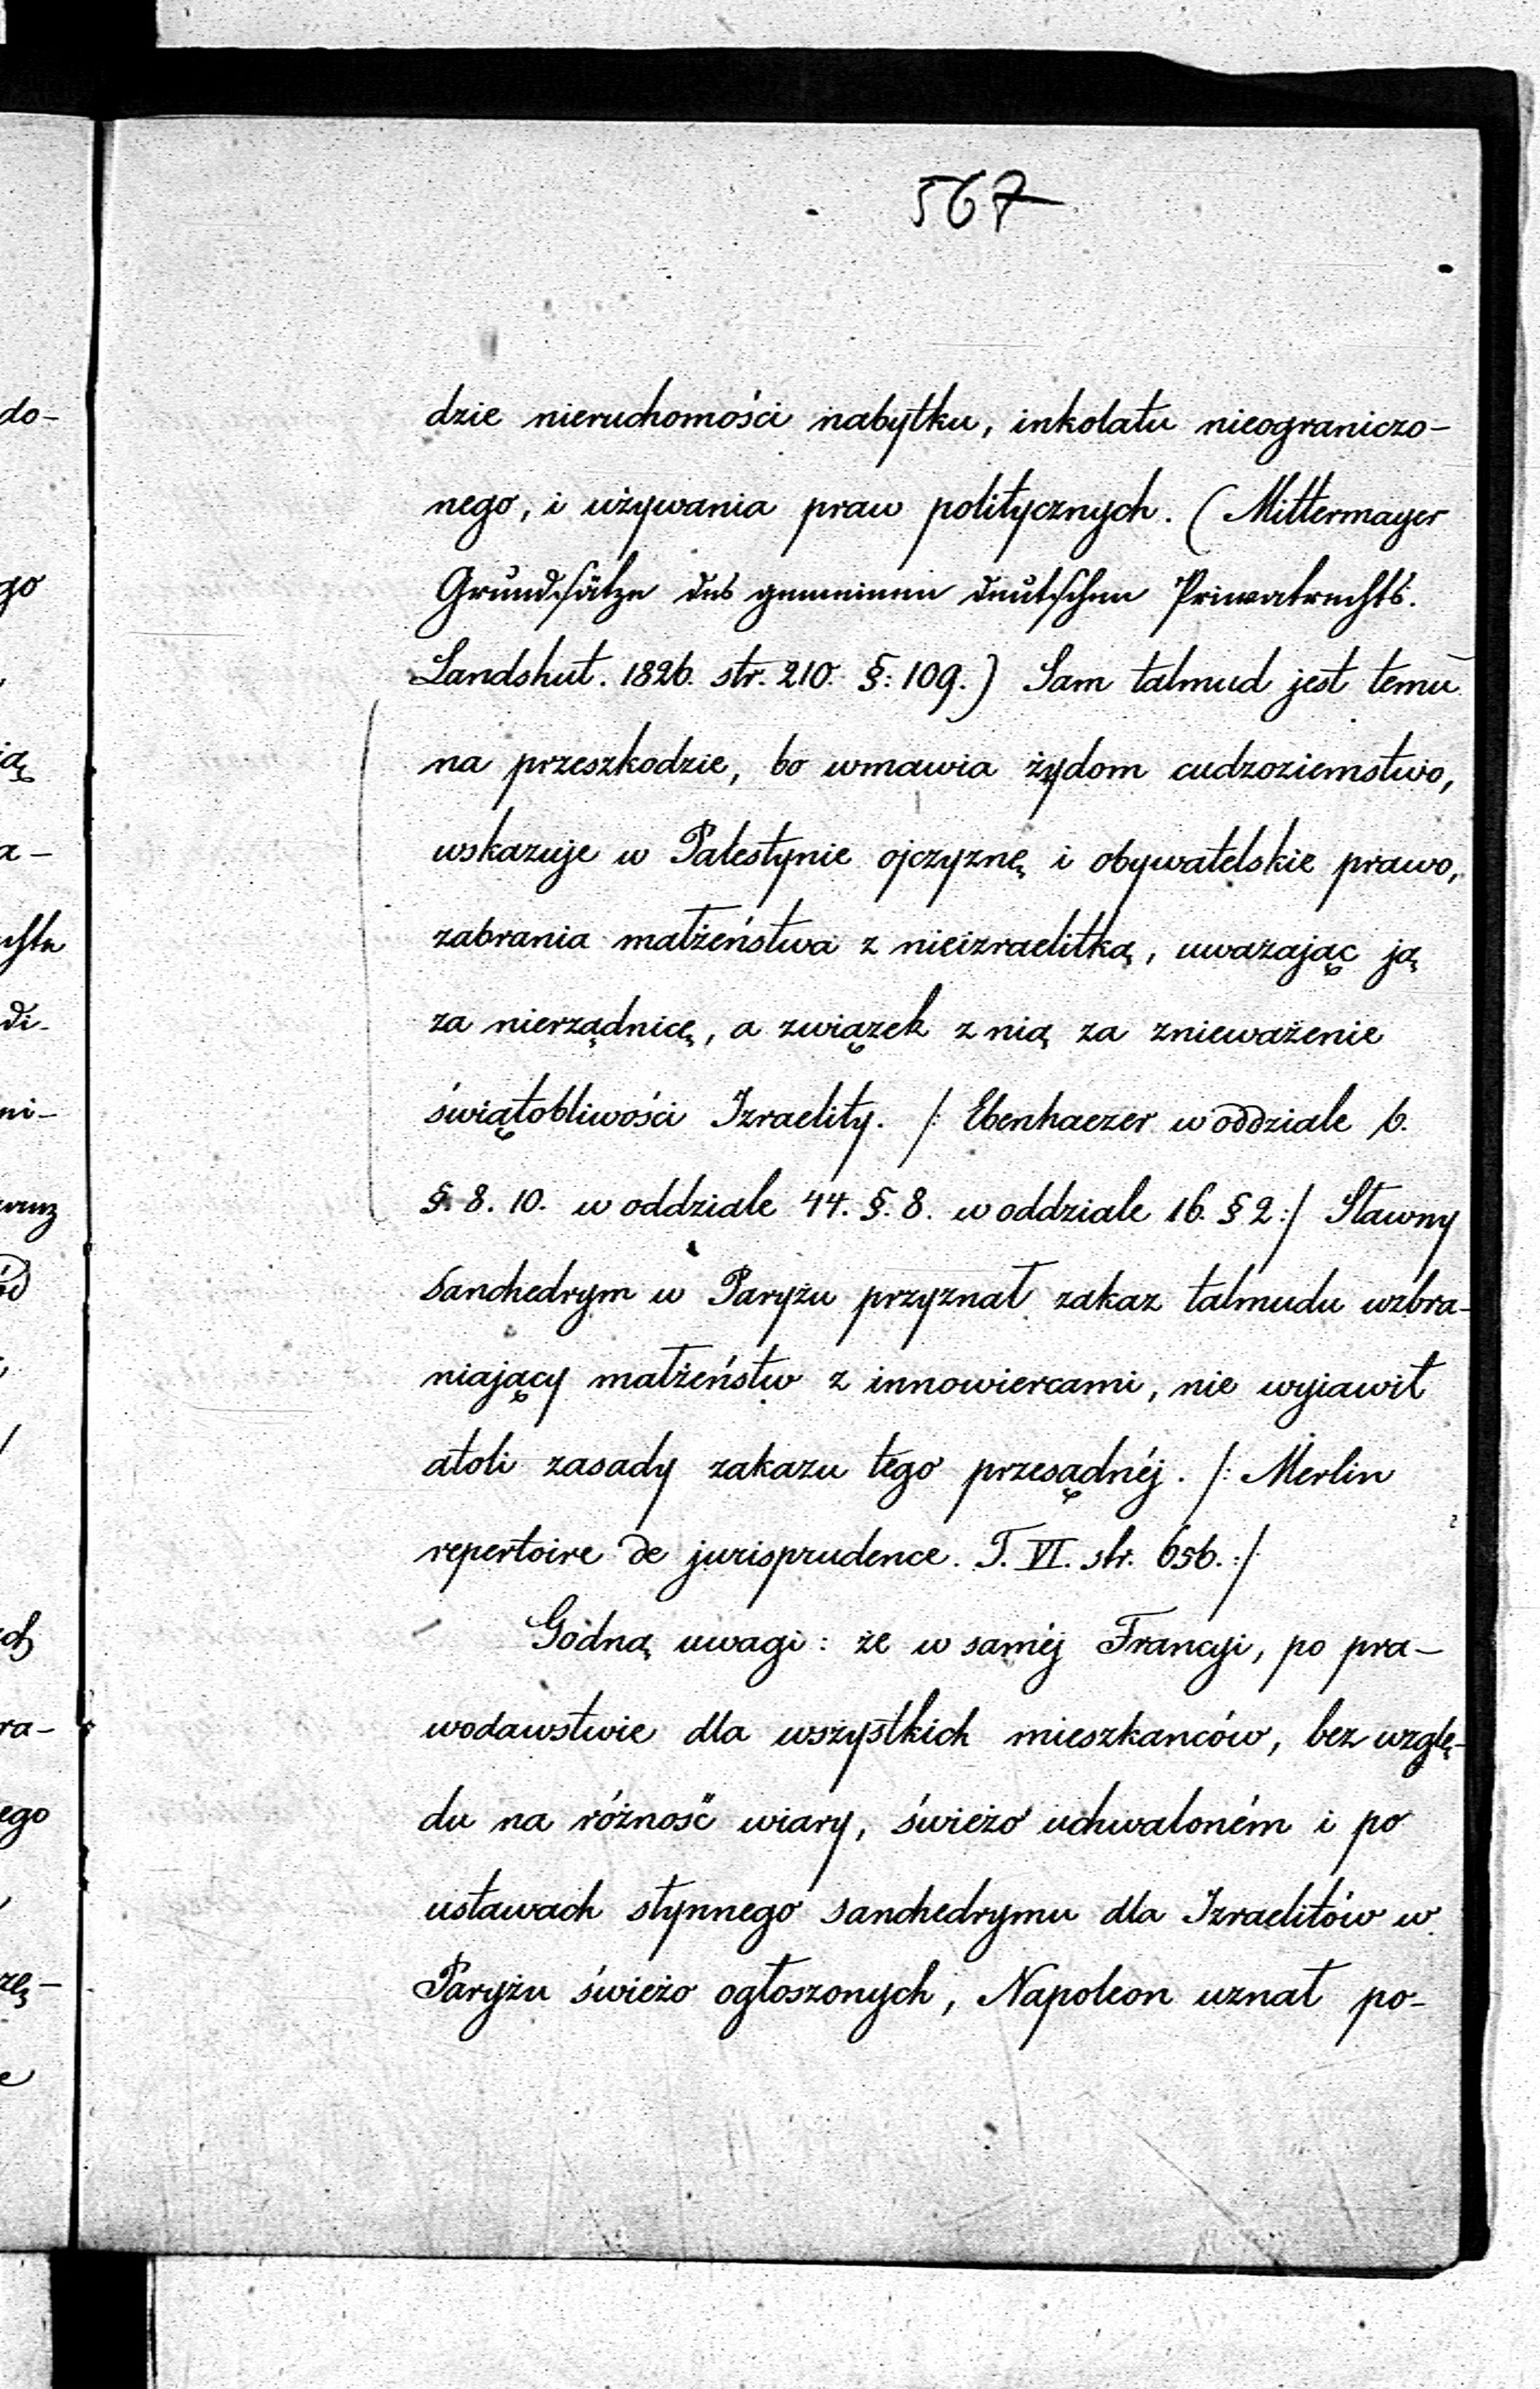 567
dzie nieruchomości nabytku, inkolatu nieograniczo-
nego, i używania praw politycznych. (Mittermayer
Grundsätze des gemeinen deutschen Privatrechts.
Landshut. 1826. str. 210. §: 109.) Sam talmud jest temu
na przeszkodzie, bo wmawia żydom cudzoziemstwo,
wskazuje w Palestynie ojczyznę i obywatelskie prawo,
zabrania małżeństwa z nieizraelitką, uważając ją
za nierządnicę, a związek z nią za znieważenie
świątobliwości Izraelity. /: Ebenhaezer w oddziale 6.
§. 8. 10. w oddziale 44. §. 8. w oddziale 16. § 2:/ Sławny
Sanchedrym w Paryżu przyznał zakaz talmudu wzbra-
niający małżeństw z innowiercami, nie wyiawił
atoli zasady zakazu tego przesądnéj. /: Merlin
repertoire de jurisprudence. T. VI. str. 656. :/
Godną uwagi: że w saméj Francyi, po pra-
wodawstwie dla wszystkich mieszkanców, bez wzglę-
du na różność wiary, świeżo uchwaloném i po
ustawach słynnego sanchedrymu dla Izraelitów w
Paryżu świeżo ogłoszonych, Napoleon uznał po-
do-
go
ią
a-
di-
ni-
ód
ra-
ego
zę-
e